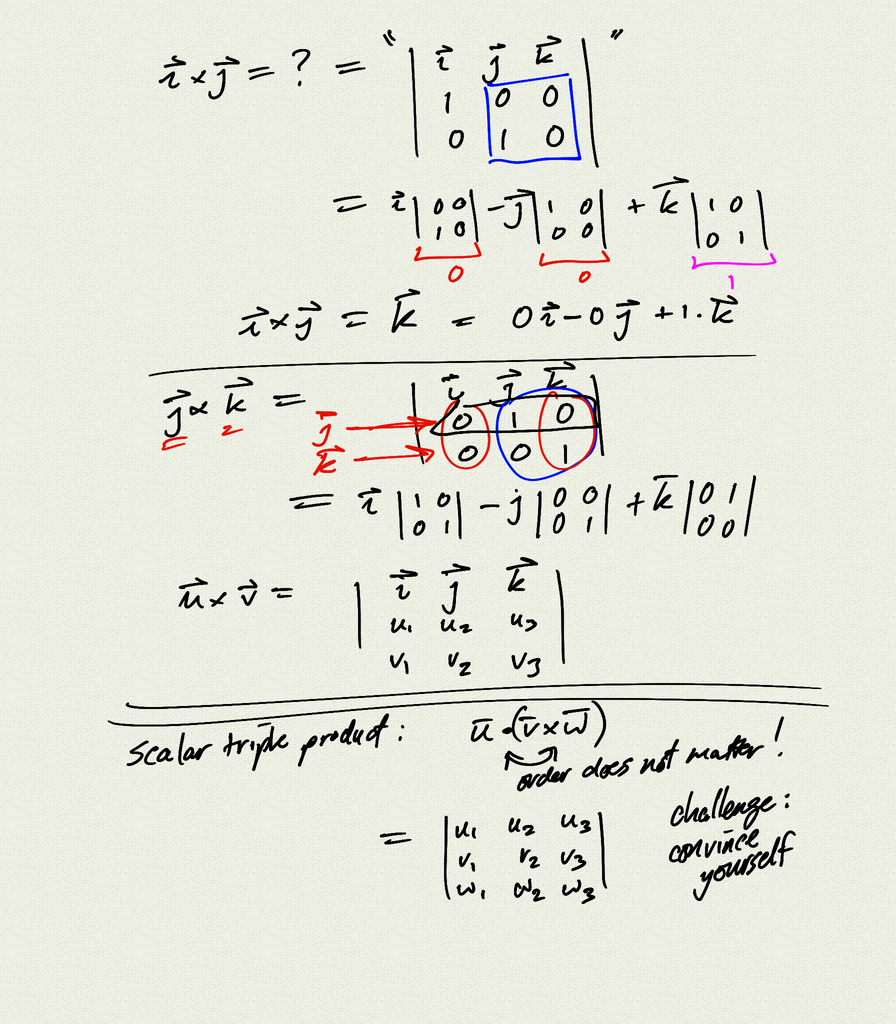 i⃗ × j⃗ = ? = " | i⃗ j⃗ k⃗ | "
1 0 0
0 1 0
= i⃗ | 0 0 | - j⃗ | 1 0 | + k⃗ | 1 0 |
1 0 0 0 0 1
0 0 1
i⃗ × j⃗ = k⃗ = 0 i⃗ - 0 j⃗ + 1 · k⃗
j⃗ × k⃗ = | i⃗ j⃗ k⃗ |
j⃗ → 0 1 0
k⃗ → 0 0 1
= i⃗ | 1 0 | - j | 0 0 | + k̄ | 0 1 |
0 1 0 1 0 0
u⃗ × v⃗ = | i⃗ j⃗ k⃗ |
u₁ u₂ u₃
v₁ v₂ v₃
scalar triple product : ū · (v̄ × w̄)
order does not matter !
= | u₁ u₂ u₃ |
v₁ v₂ v₃
w₁ w₂ w₃
challenge :
convince
yourself